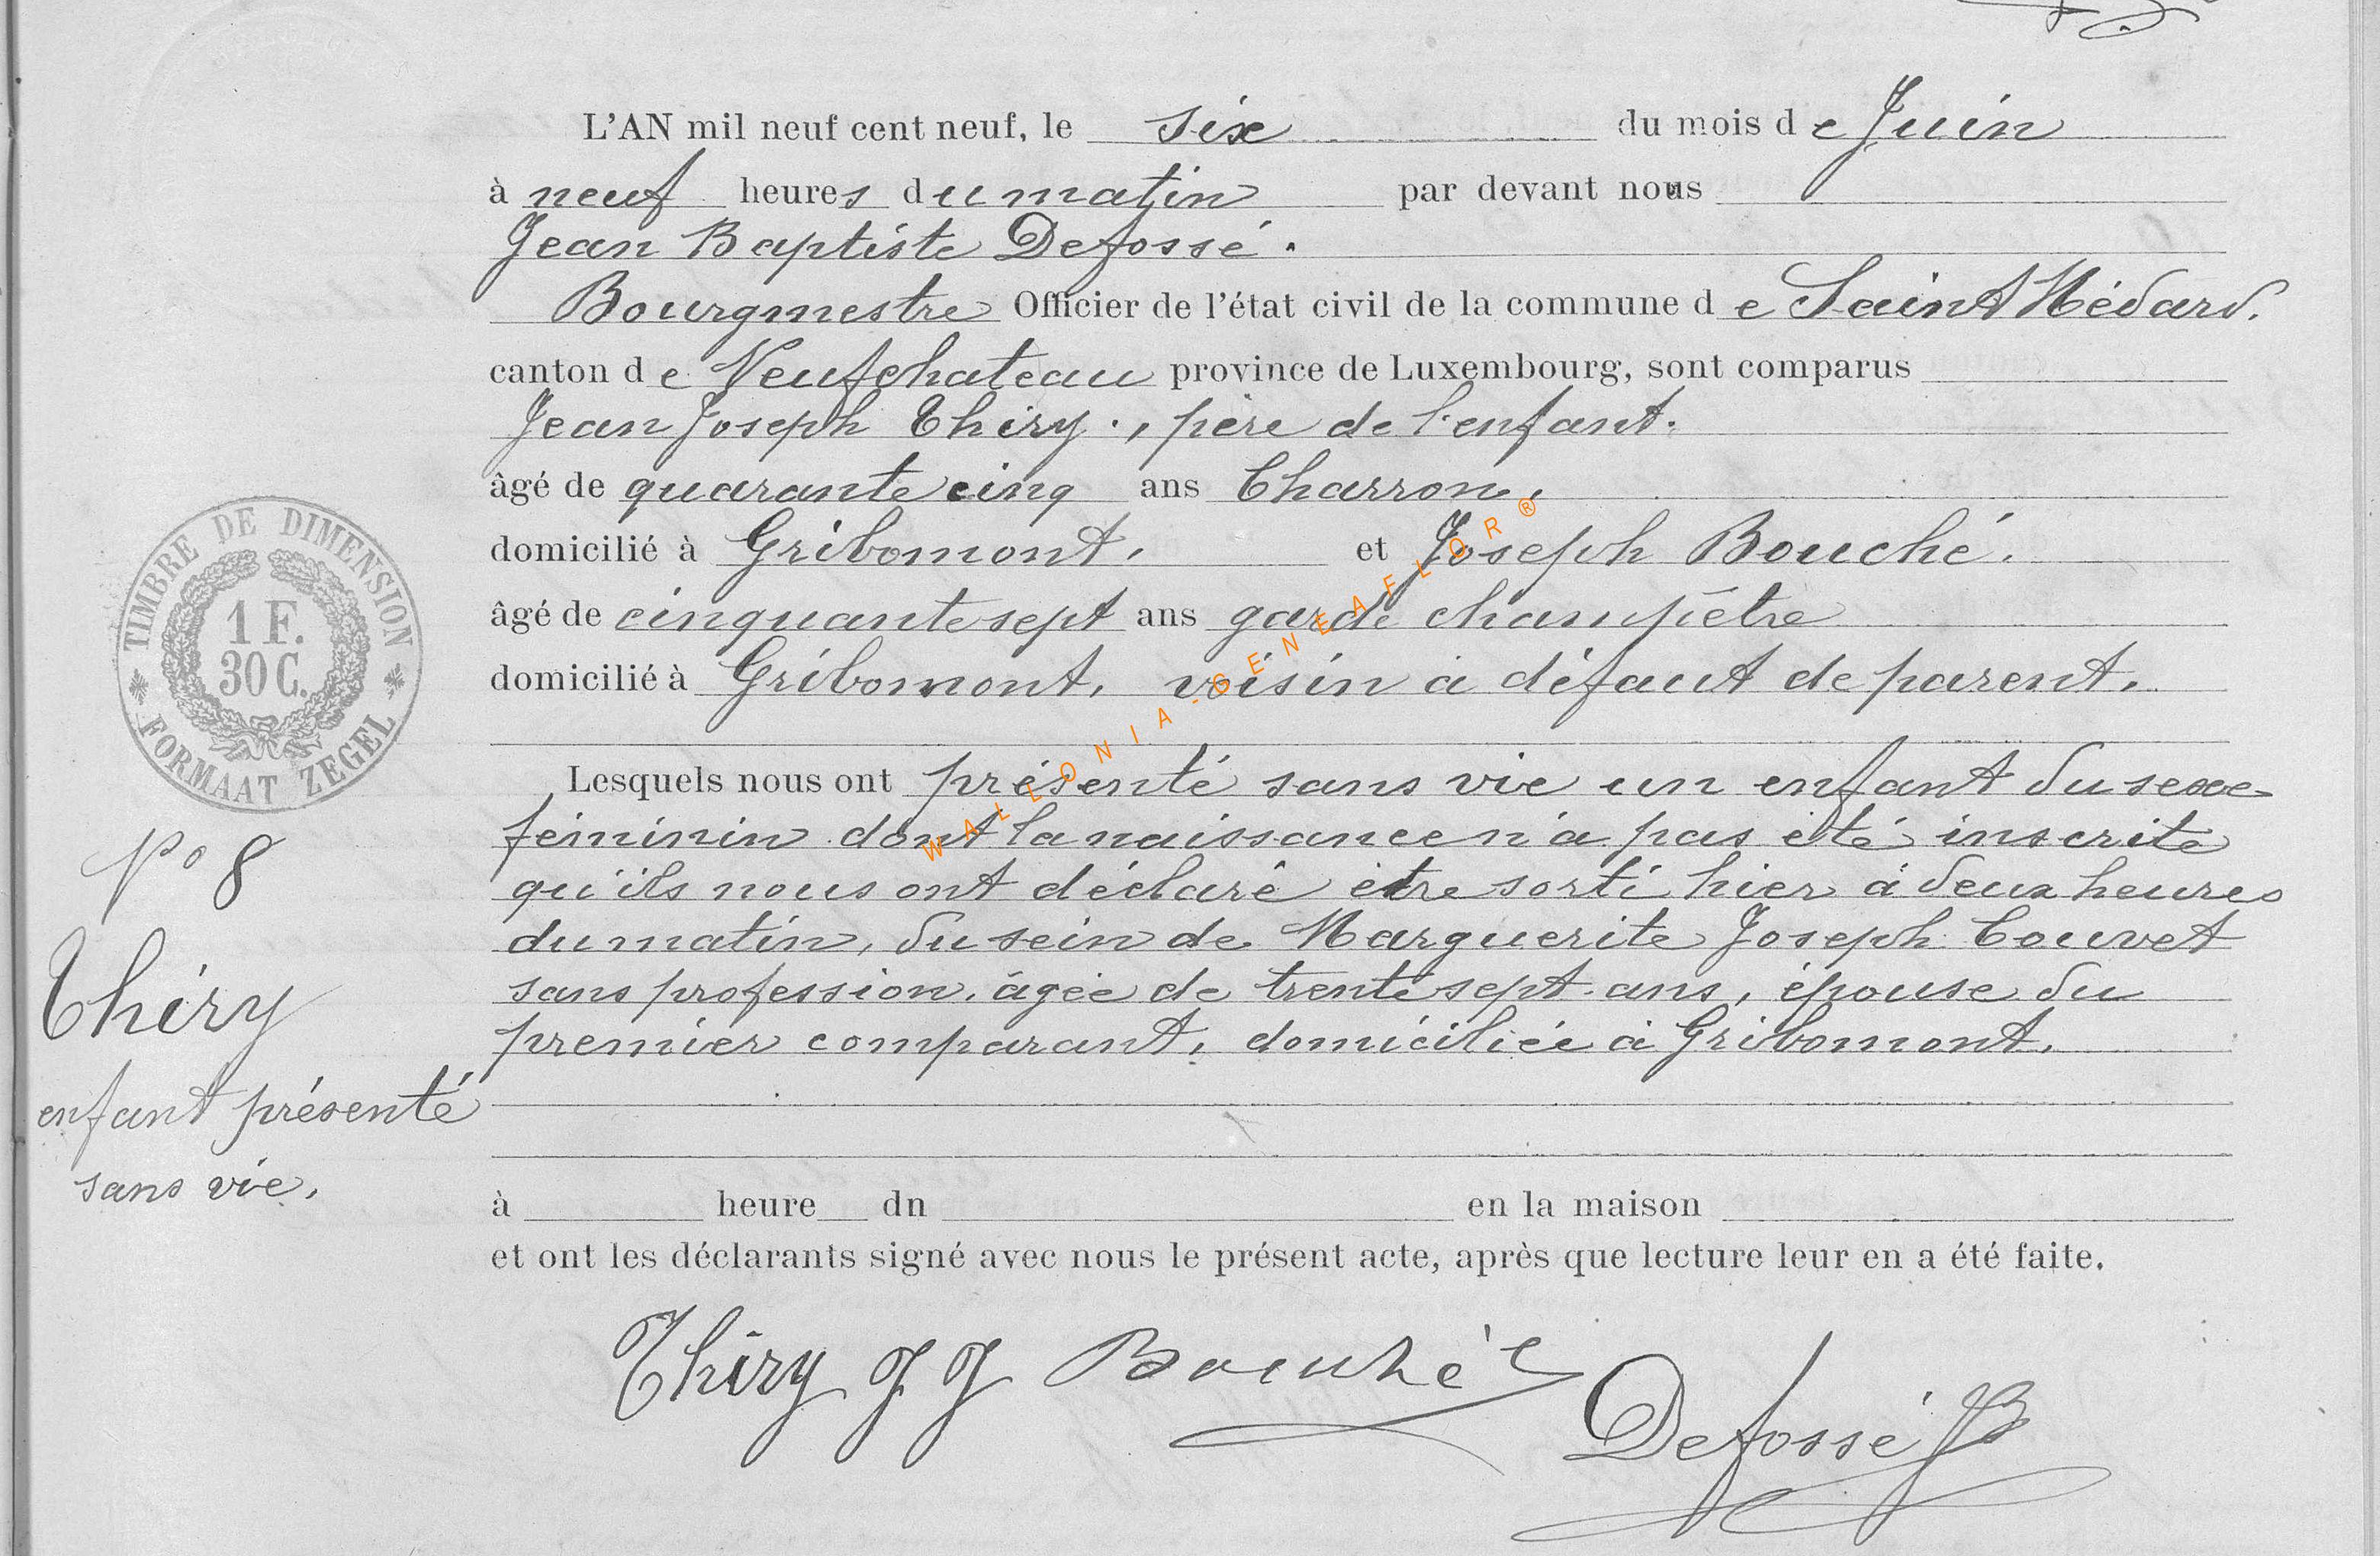 L'AN mil neuf cent neuf, le six du mois de Juin
à neuf heures du matin par devant nous
Jean Baptiste Defossé.
Bourgmestre Officier de l'état civil de la commune de Saint Médard.
canton de Neufchateau province de Luxembourg, sont comparus
Jean Joseph Thiry., père de l'enfant.
âgé de quarante cinq ans Charron,
domicilié à Gribomont, et Joseph Bouché.
âgé de cinquante sept ans garde champêtre
domicilié à Gribomont, voisin à défaut de parent.
Lesquels nous ont présenté sans vie un enfant du sexe
féminin dont la naissance n'a pas été inscrite
qu'ils nous ont déclaré être sorti hier à deux heures
du matin, du sein de Marguerite Joseph Couvet
sans profession, âgée de trente sept ans, épouse du
premier comparant, domiciliée à Gribomont.
à heure dn en la maison
et ont les déclarants signé avec nous le présent acte, après que lecture leur en a été faite.
Thiry J J Bouché
Defossé JB
TIMBRE DE DIMENSION
1 F.
30 C.
FORMAAT ZEGEL
No 8
Thiry
enfant présenté
sans vie.
WALLONIA-GENEAFLOR®